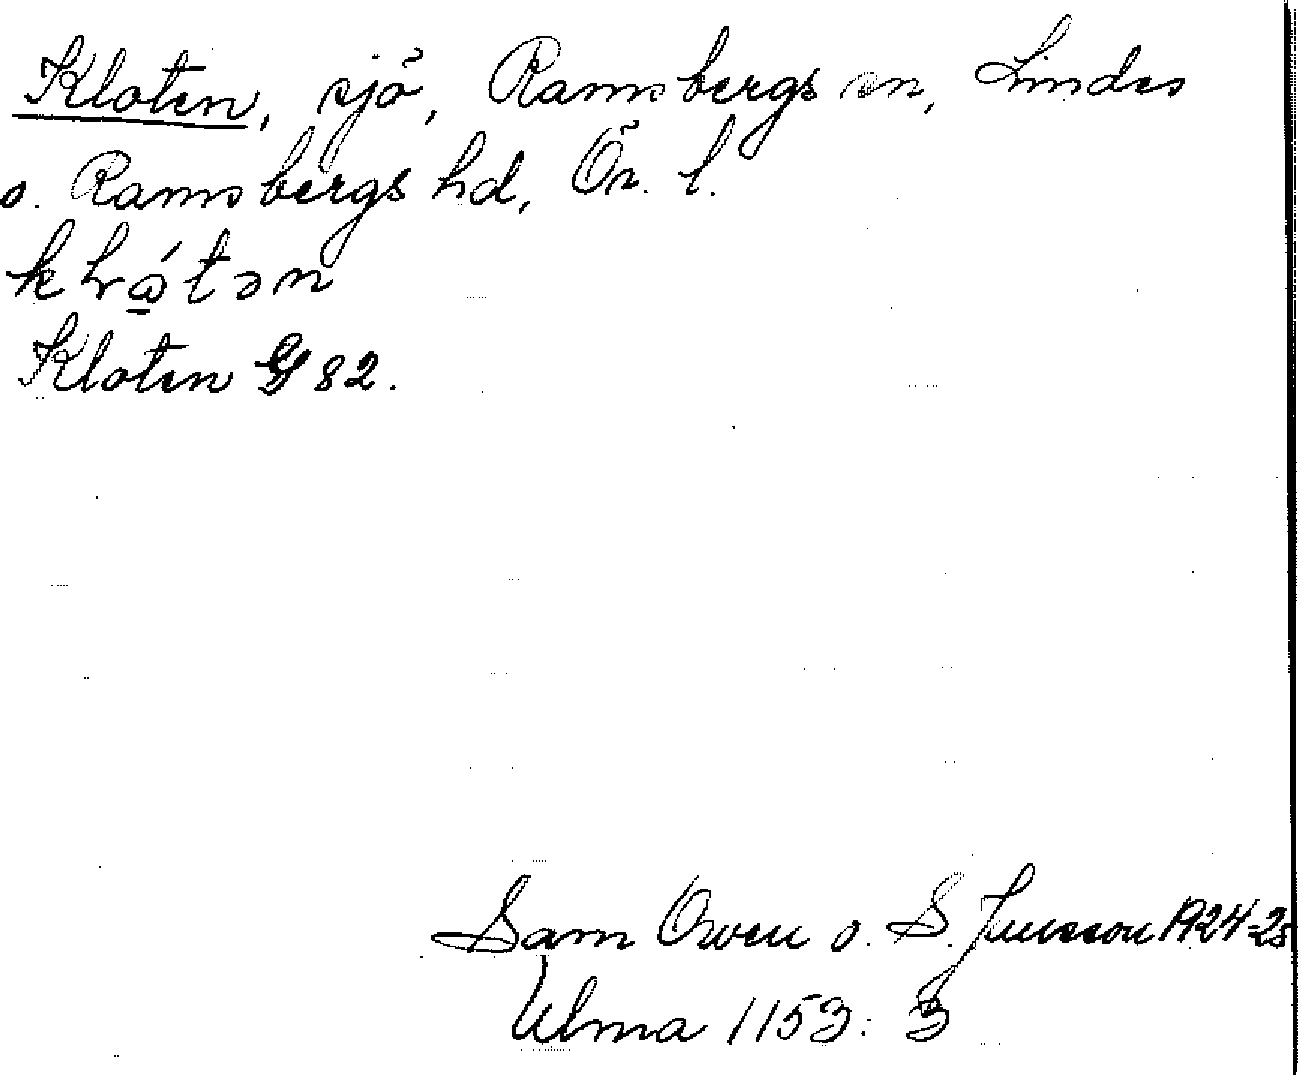 Kloten, sjö, Ramsbergs sn, Lindes
o. Ramsbergs hd, Ör. l.
Kloten G 82.
Sam Owen o. S. Jansson 1924-25
Ulma 1153: 3